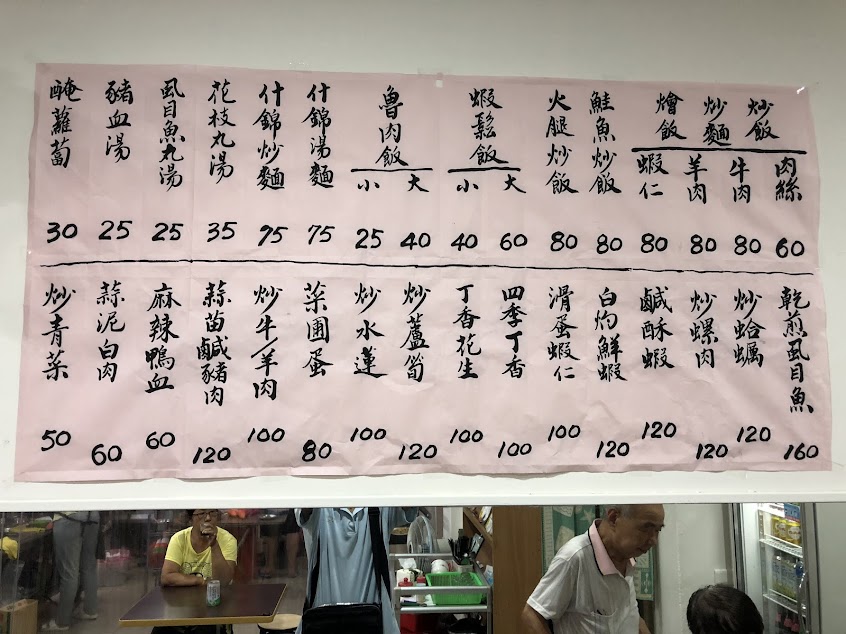 炒飯
炒麵
燴飯
肉絲
60
牛肉
80
羊肉
80
蝦仁
80
鮭魚炒飯
80
火腿炒飯
80
蝦鬆飯
大
60
小
40
魯肉飯
大
40
小
25
什錦湯麵
75
什錦炒麵
95
花枝丸湯
35
虱目魚丸湯
25
豬血湯
25
醃蘿蔔
30
乾煎虱目魚
160
炒蛤蠣
120
炒螺肉
120
鹹酥蝦
120
白灼鮮蝦
120
滑蛋蝦仁
100
四季丁香
100
丁香花生
100
炒蘆筍
120
炒水蓮
100
菜圃蛋
80
炒牛/羊肉
100
蒜苗鹹豬肉
120
麻辣鴨血
60
蒜泥白肉
60
炒青菜
50